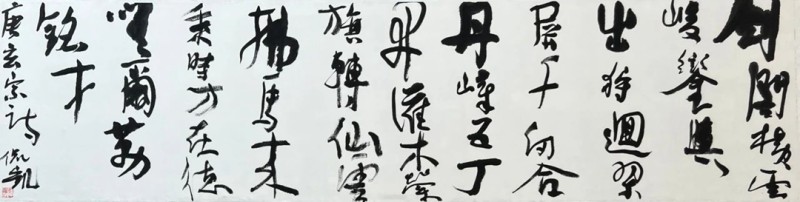 劍閣橫雲
峻鑾輿
出狩迴翠
屏千仞合
丹嶂五丁
開灌木縈
旗轉仙雲
拂馬来
乘時方在德
嗟爾勒
銘才
唐玄宗詩